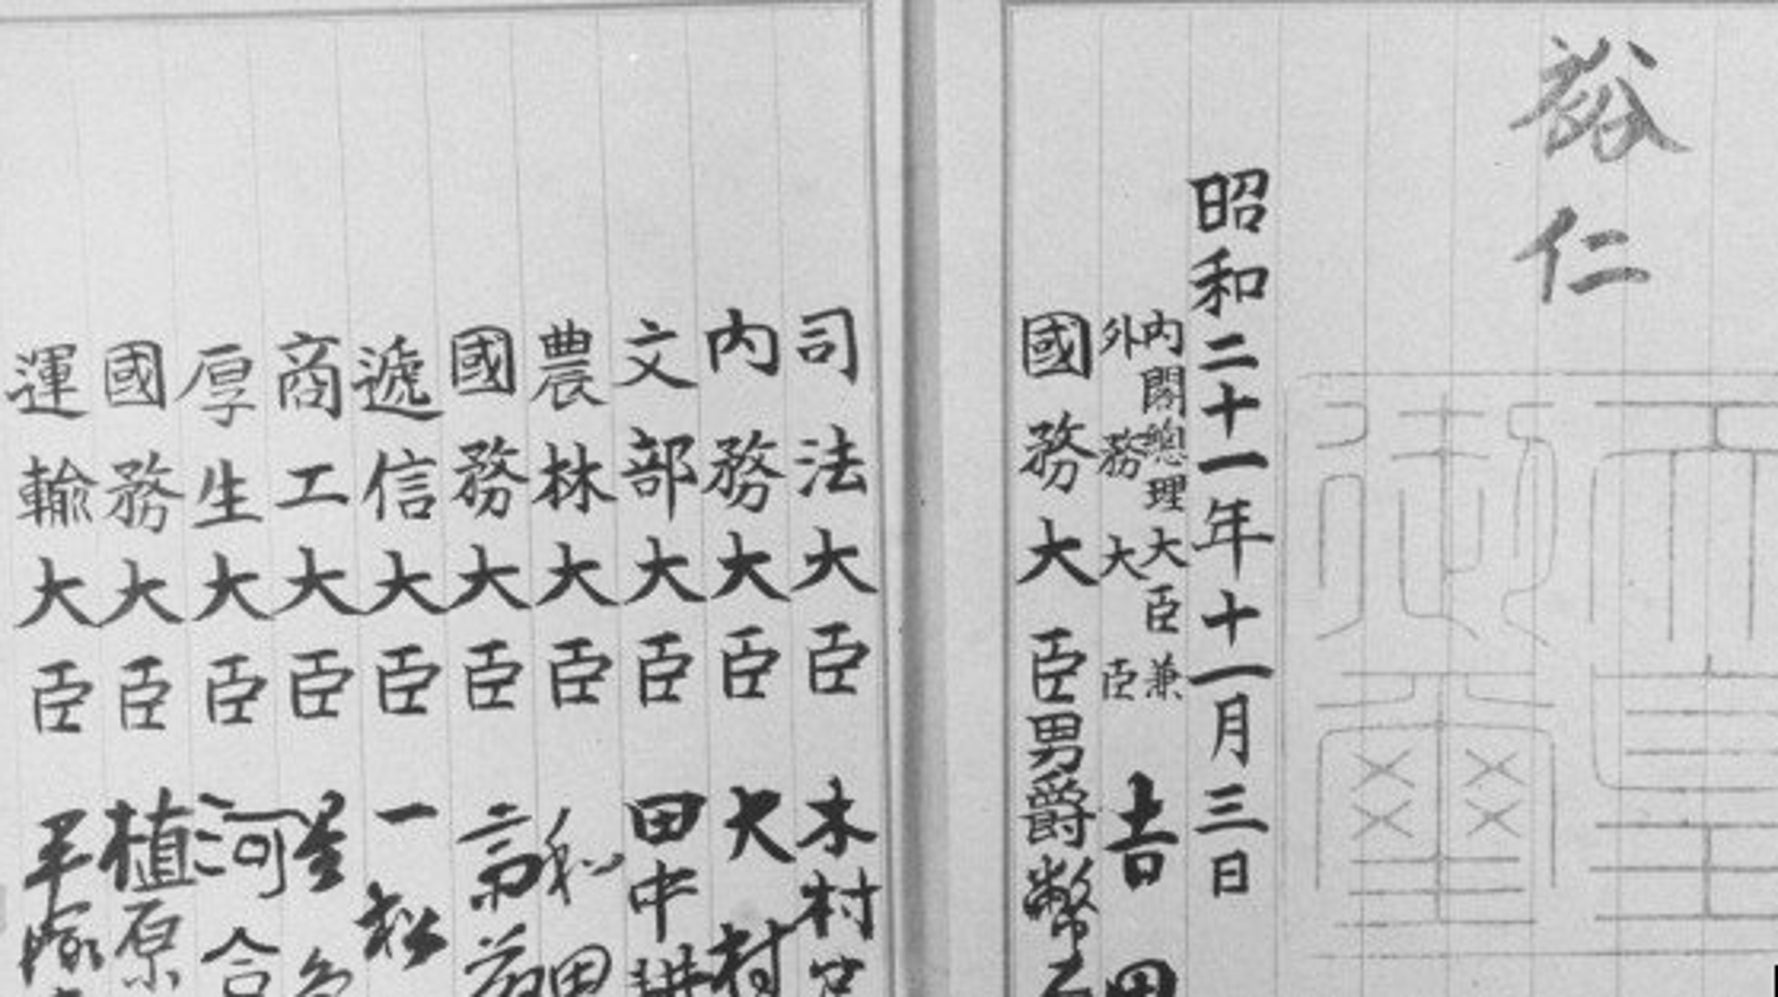 裕仁
天皇御璽
昭和二十一年十一月三日
內閣總理大臣兼
外務大臣 吉田
國務大臣 男爵 幣
司法大臣 木村
內務大臣 大村
文部大臣 田中耕
農林大臣 和田
國務大臣
遞信大臣 一松
商工大臣 星
厚生大臣 河合
國務大臣 植原
運輸大臣 平塚